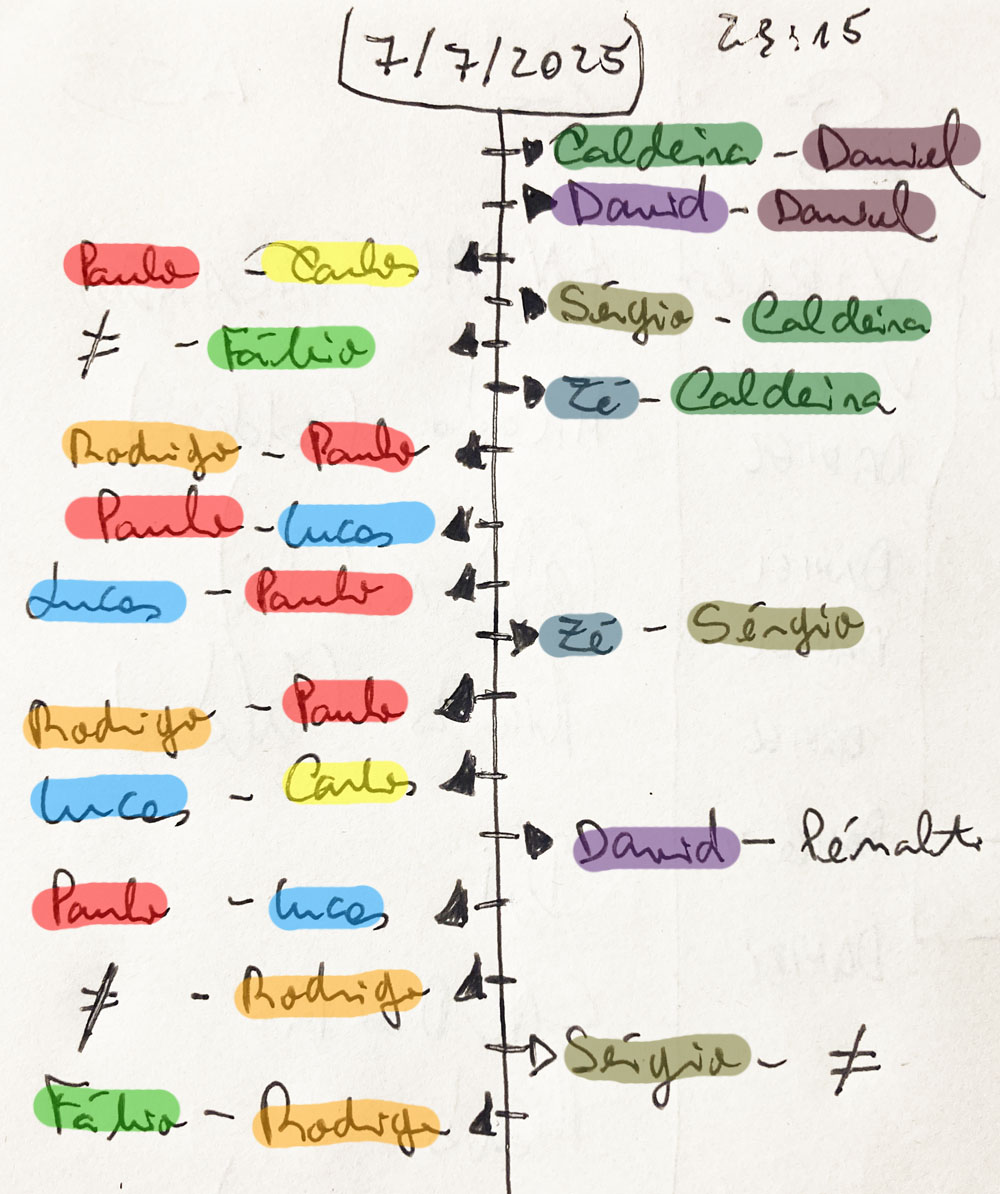 7/7/2025 23:15
Caldeira - Daniel
David - Daniel
Paulo - Carlos
Sérgio - Caldeira
≠ - Fábio
Zé - Caldeira
Rodrigo - Paulo
Paulo - Lucas
Lucas - Paulo
Zé - Sérgio
Rodrigo - Paulo
Lucas - Carlos
David - Pénalti
Paulo - Lucas
≠ - Rodrigo
Sérgio - ≠
Fábio - Rodrigo